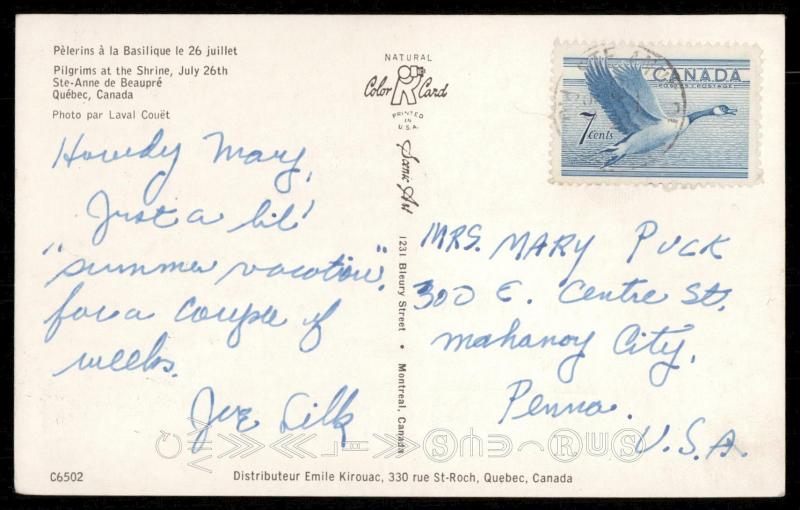 Pèlerins à la Basilique le 26 juillet
Pilgrims at the Shrine, July 26th
Ste-Anne de Beaupré
Québec, Canada
Photo par Laval Couët
Howdy Mary,
Just a lil'
"summer vacation",
for a couple of
weeks.
Joe Silk
C6502
NATURAL
Color Card
PRINTED
IN
U.S.A.
Scenic Art
1231 Bleury Street • Montreal, Canada
CANADA
POSTES POSTAGE
7 cents
MRS. MARY PUCK
300 E. Centre St.
Mahanoy City,
Penna.
U.S.A.
Distributeur Emile Kirouac, 330 rue St-Roch, Quebec, Canada